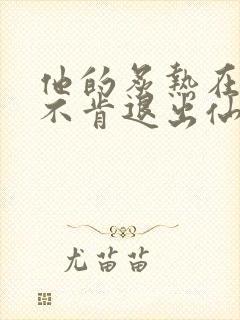 他的炙热在
不肯退出仙
尤苗苗